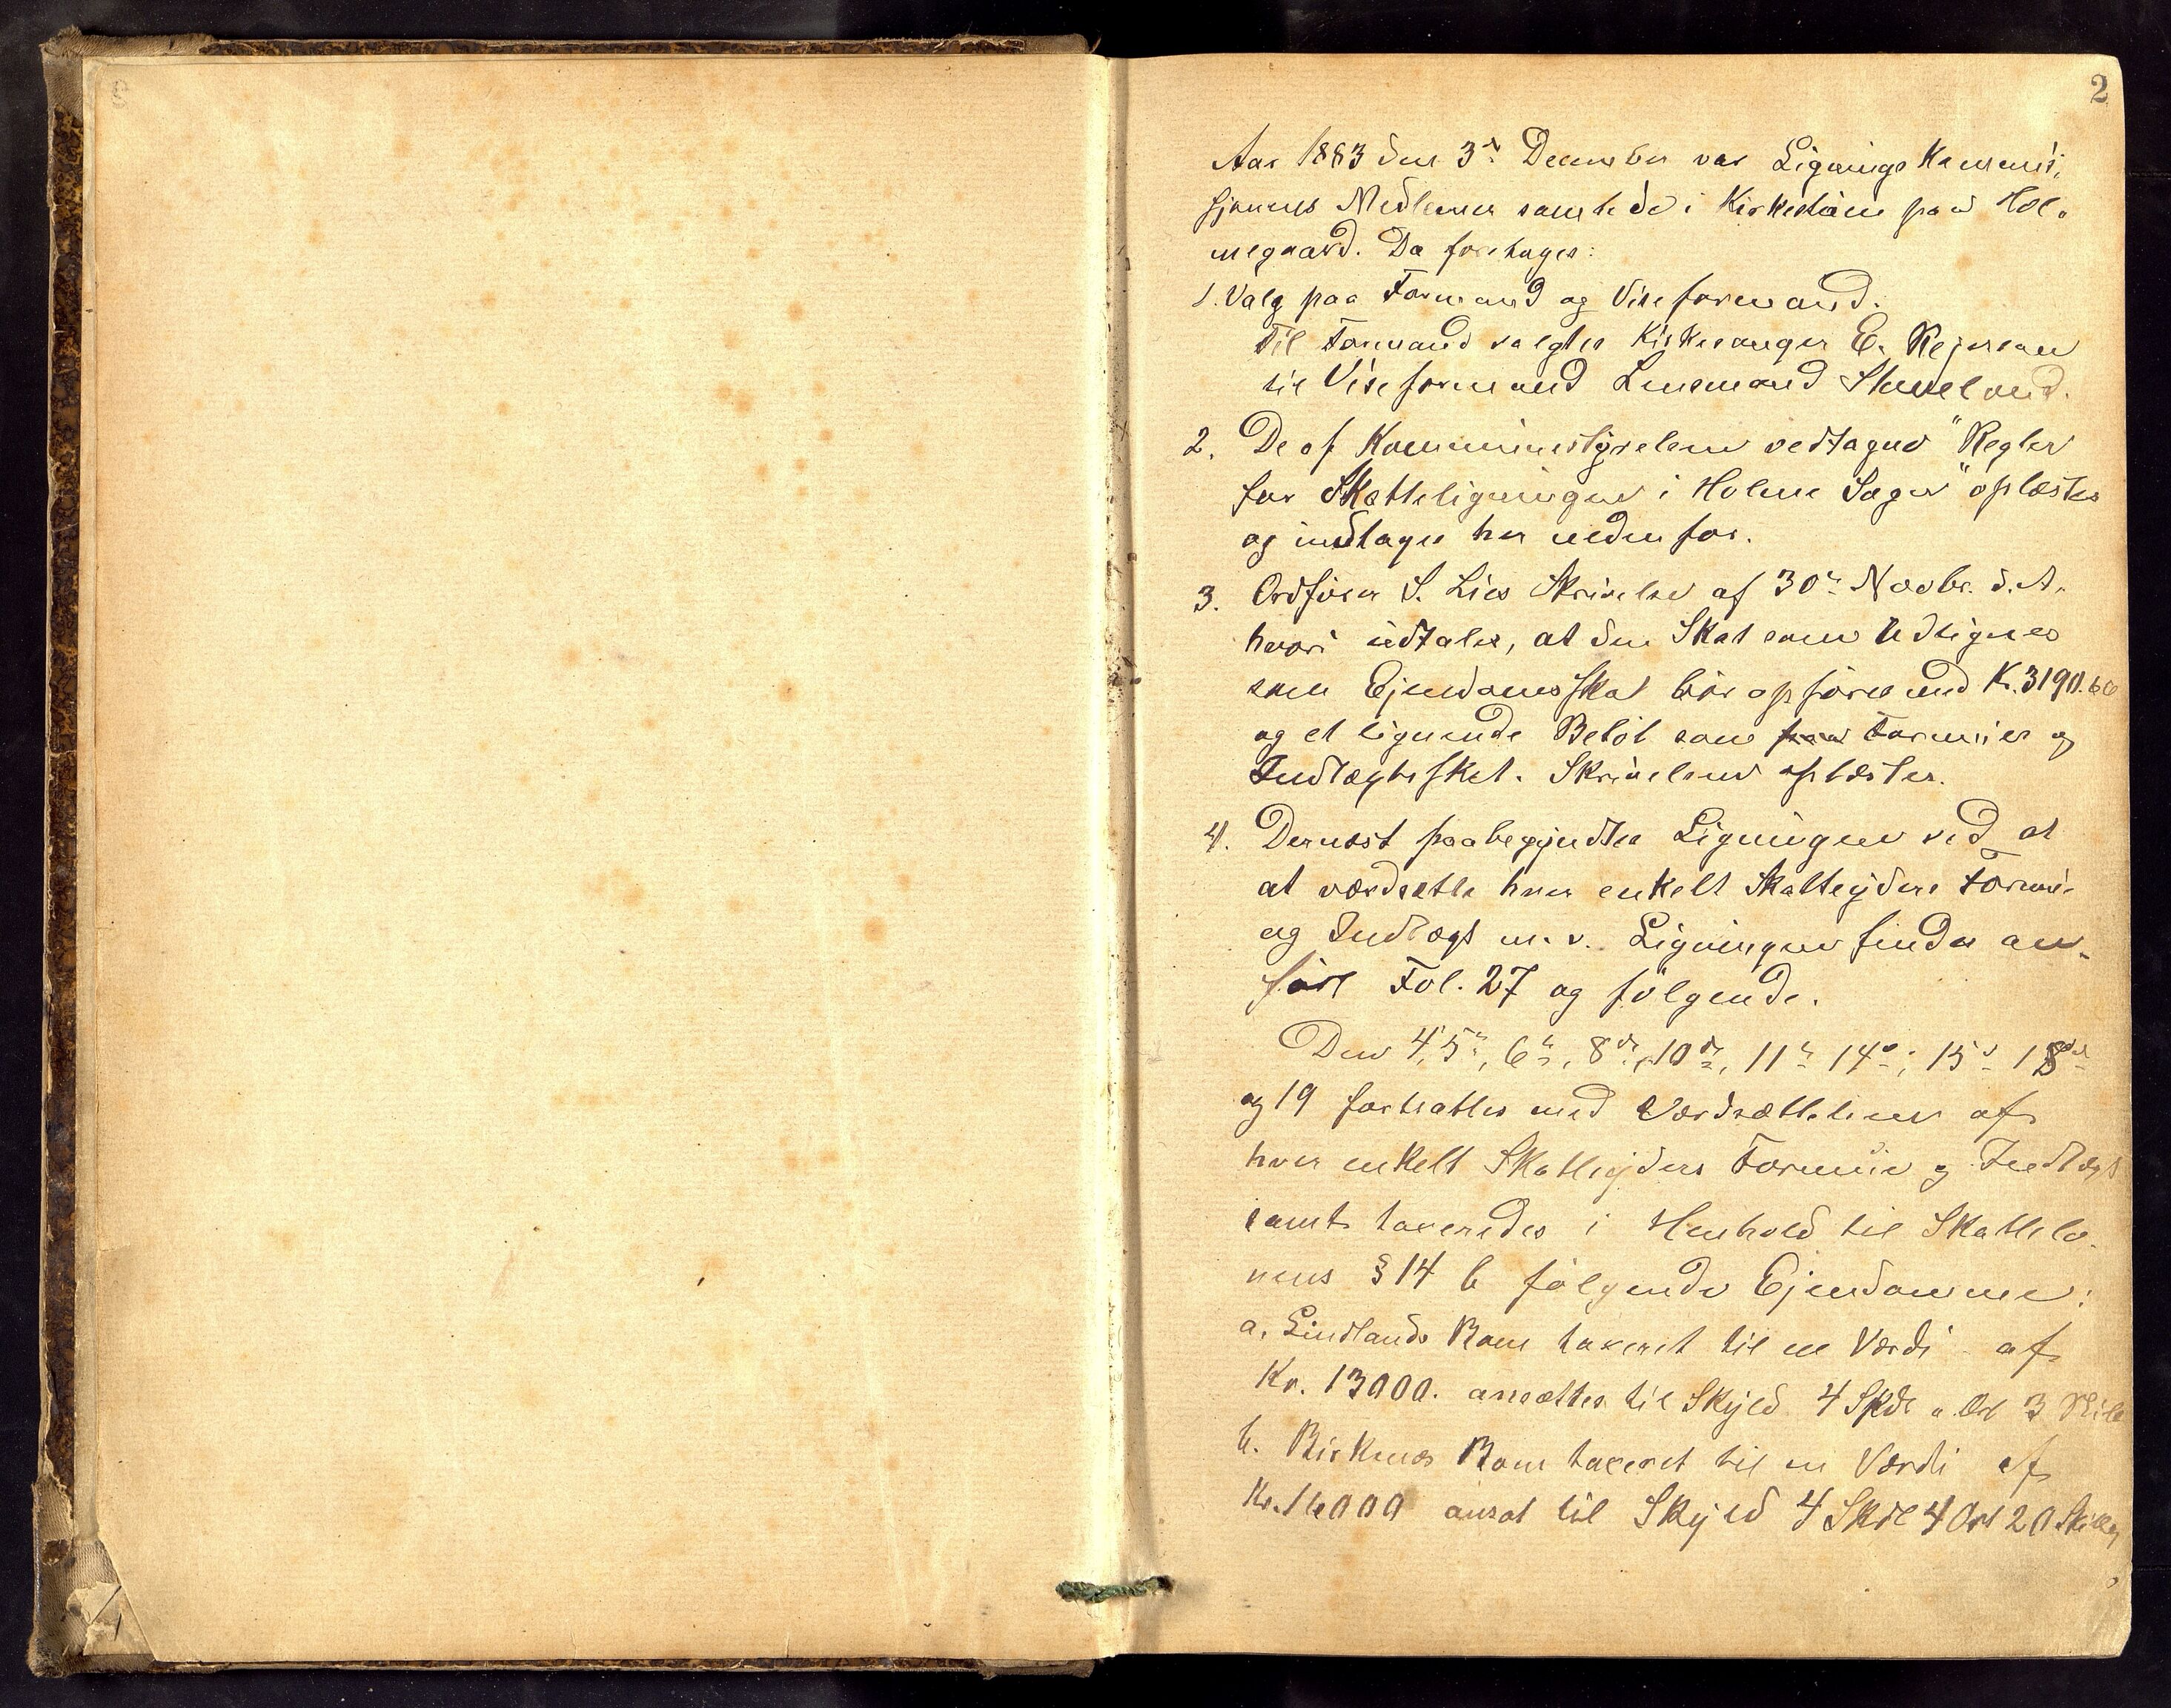 2
Aar 1883 den 3d December var Lignings Kommis-
sjonens Medlemer samlede i Kirkestuen paa Hol-
megaard. Da foretoges:
1. Valg paa Formand og Viseformand.
Til Formand valgtes Kirkesanger E. Rejersen
til Viseformand Lensmand Stuveland.
2. De af Kommunestyrelsen vedtagne "Regler
for Skatteligningen i Holme Sogn" oplæstes
og indtages her nedenfor.
3. Ordfører S. Lies Skrivelse af 30te Novbr. d. A.
hvori udtales, at den Skat som Udlignes
som Ejendomsskat bør opføres med Kr. 3190.60
og et lignende Beløb som paa Formues og
Indtægtsskat. Skrivelsen oplæstes.
4. Dernæst paabegyndtes Ligningen ved at
at værdsætte hver enkelt Skatteyders Formue
og Indtægt m. v. Ligningen findes an-
ført Fol. 27 og følgende.
Den 4, 5te, 6te, 8de, 10de, 11te 14de, 15de 18de
og 19 fortsattes med Værdsættelsen af
hver enkelt Skatteyders Formue og Indtægt
samt taxeredes i Henhold til Skattelo-
vens § 14 b følgende Ejendomme:
a. Lindlands Brug taxeret til en Værdi af
Kr. 13000. ansættes til Skyld 4 Spdl " Ort 3 Skil
b. Birknes Brug taxeret til en Værdi af
Kr. 16000 ansat til Skyld 4 Skdl 4 Ort 20 Skilling